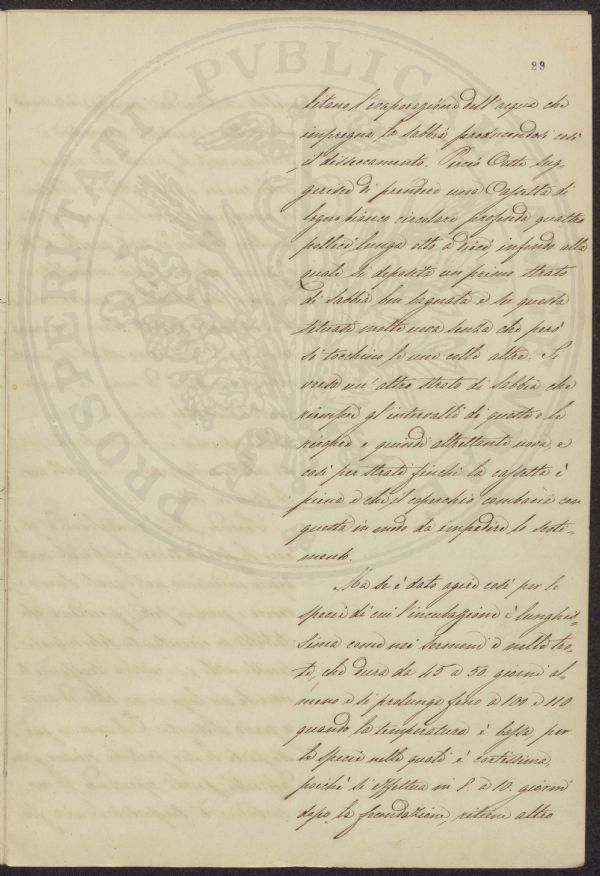 29
PROSPERITATI PVBLICAE
litano l'evaporazione dell'acqua che
impregna la sabbia producendosi così
il disseccamento. Perciò Coste sug-
gerisce di prendere una Cassetta di
legno bianco circolare profonda quattro
pollici lunga otto a dieci infondo alla
quale si deposita un primo strato
di sabbia ben bagnata e su questa
situarsi molte uova senza che però
si tocchino le une colle altre. Si
versa un'altro strato di sabbia che
riempie gl'intervalli di queste e le
ricopre e quindi altrettante uova, e
così per strati finché la cassetta è
piena e che il coperchio combacia con
questa in modo da impedire lo
Ma se è dato agire così per le
specie di cui l'incubazione è lunghis-
sima come nei sermoni e nelle tro-
te, che dura da 45 a 50 giorni al-
meno e si prolunga fino a 100 e 110
quando la temperatura è bassa, per
le specie nelle quali è cortissima,
poiché si effettua in 8. a 10. giorni
dopo la fecondazione, ritiene altro